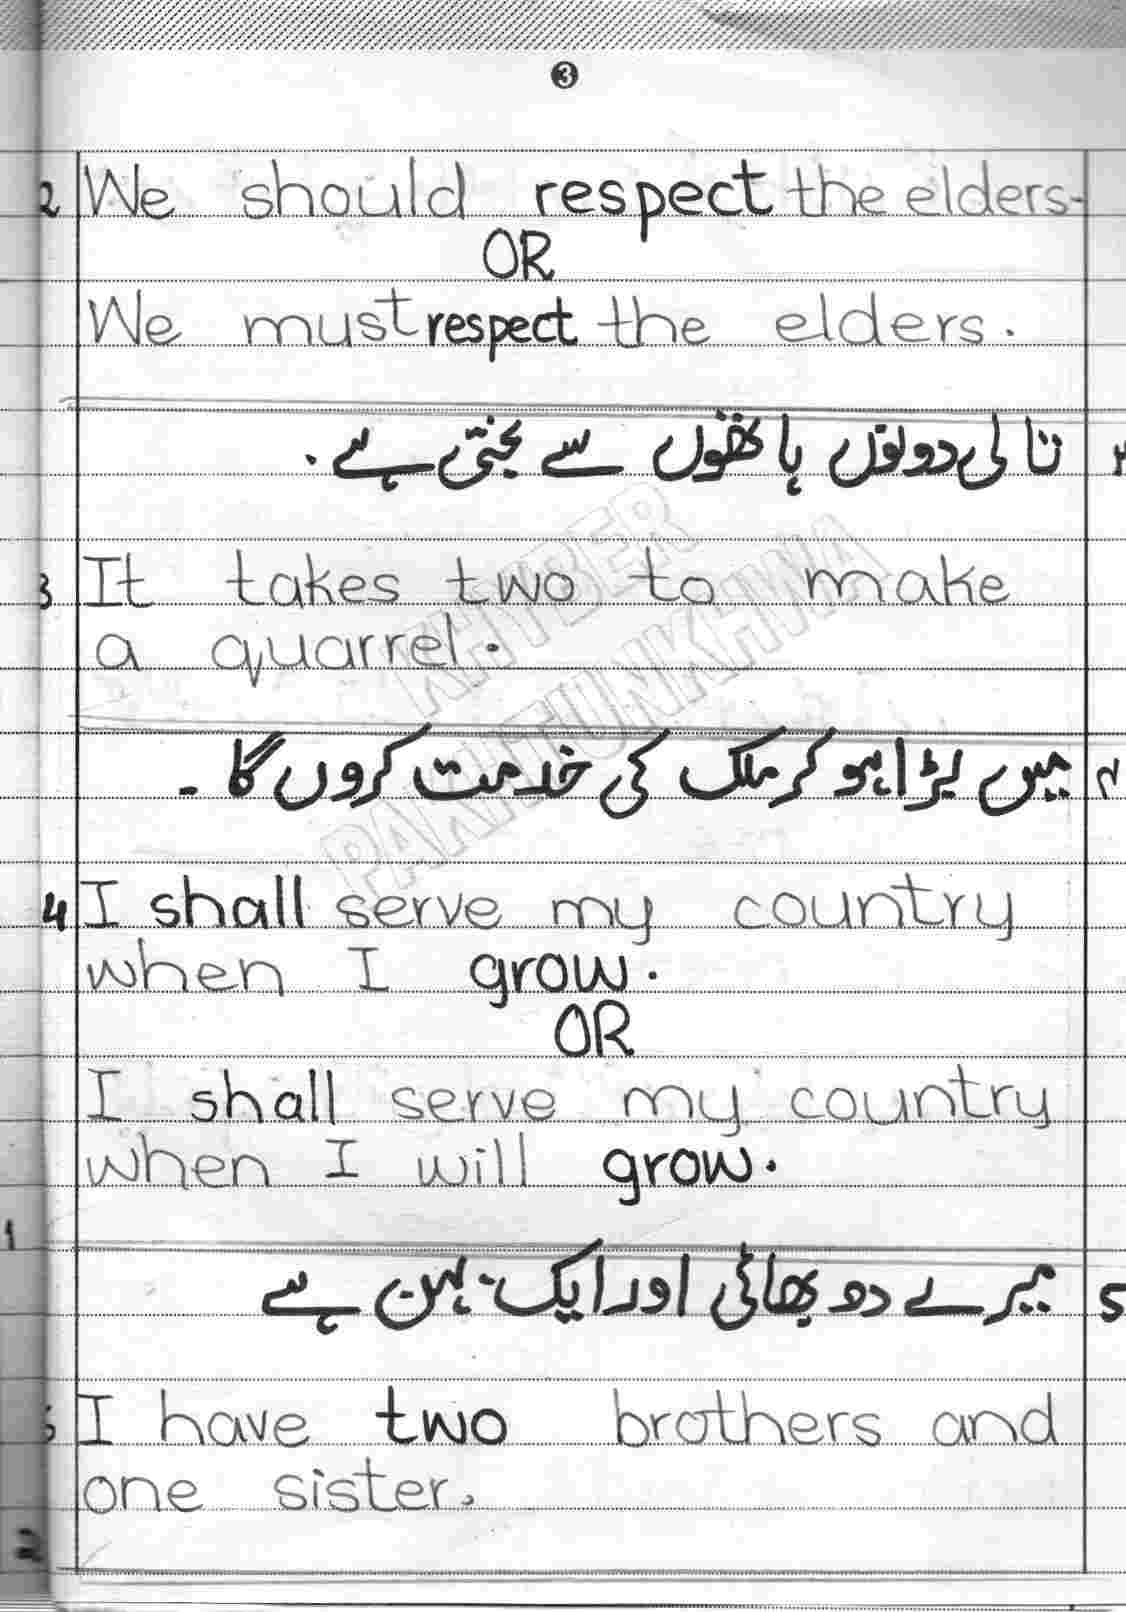 3
2 We should respect the elders-
OR
We must respect the elders.
تالی دونوں ہاتھوں سے بجتی ہے۔
3 It takes two to make
a quarrel.
KHYBER
PAKHTUNKHWA
۴ میں بڑا ہو کر ملک کی خدمت کروں گا ۔
4 I shall serve my country
when I grow.
OR
I shall serve my country
when I will grow.
1
5 میرے دو بھائی اور ایک بہن ہے
I have two brothers and
one sister.
2